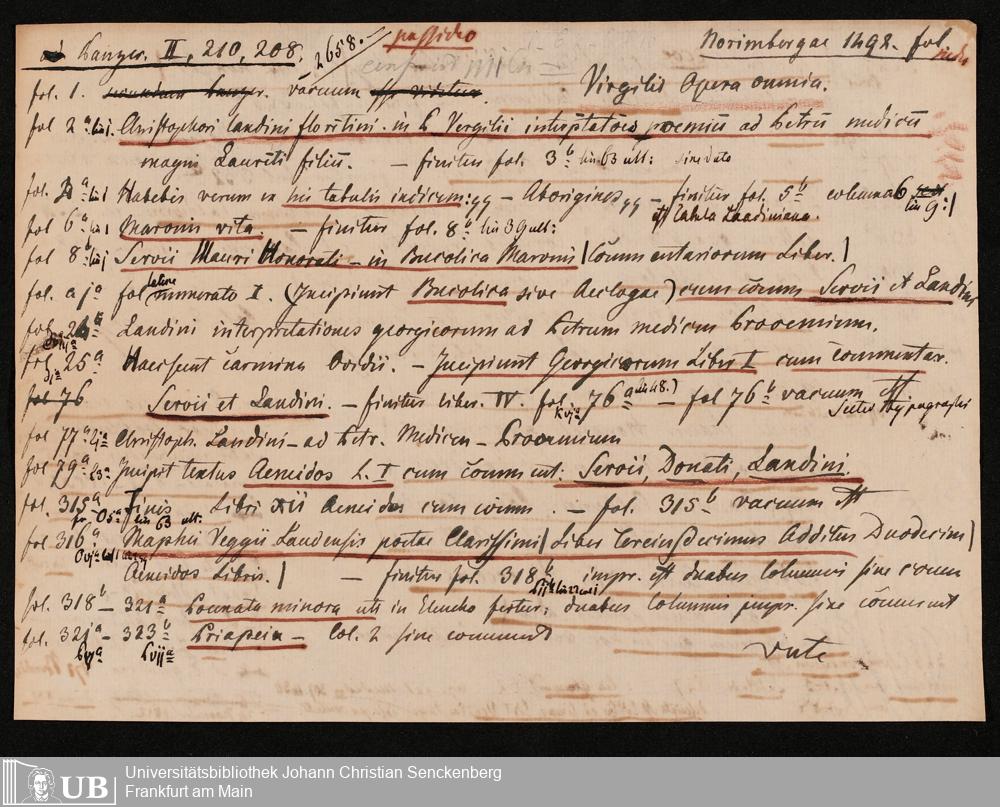 Panzer. II, 210, 208. 2658.- possideo Norimbergae 1492. fol.
fol. 1. vacuum Virgilii Opera omnia.
fol 2.a lin j. Christophori Landini florētini. in P. Vergilii interp̄tatōes proemiū ad Petrū medicē
magni Laurētii filiū. — finitur fol. 3b lin 63 ult:
fol. 4a lin 1 Habebis verum in his tabulis indicem: qq — Aborigines qq — finitur fol. 5b columna 6 lin 9:|
est Tabula Landiniana.
fol 6a lin 1 Maronis vita. — finitur fol. 8b lin 39 ult:
fol 8b lin j Servii Mauri Honorati — in Bucolica Maronis | Commentariorum Liber. |
fol. a ja fol latine numerato I. (Incipiunt Bucolica sive Aeclogae) cum comm Servii et Landini
Landini interpretationes georgicorum ad Petrum medicem Prooemium.
fol 25a Haec sunt carmina Ovidii. — Incipiunt Georgicorum Liber I cum commentar.
fol 76 Servii et Landini. — finitur liber. IV. fol. 76a lin 48.) — fol 76b vacuum est
fol 77a Christoph. Landini — ad Petr. Medicem — Prooemium
fol 79a Incipit textus Aeneidos L. I cum comment: Servii, Donati, Landini.
fol. 315a Finis Libri XII Aeneidos cum comm. — fol. 315b vacuum est
O 5a lin 63 ult.
fol 316a Maphei Veggii Laudensis poetae Clarissimi | Liber Terciusdecimus Additus Duodecim |
Aeneidos Libris. | — finitur fol. 318b impr. est duabus Columnis sine comm
fol. 318b — 321a Poemata minora uti in Elencho fertur; duabus columnis impr. sine comment
fol. 321a — 323b Priapeia — Col. 2 sine comment
P vja P vija verte
UB
Universitätsbibliothek Johann Christian Senckenberg
Frankfurt am Main